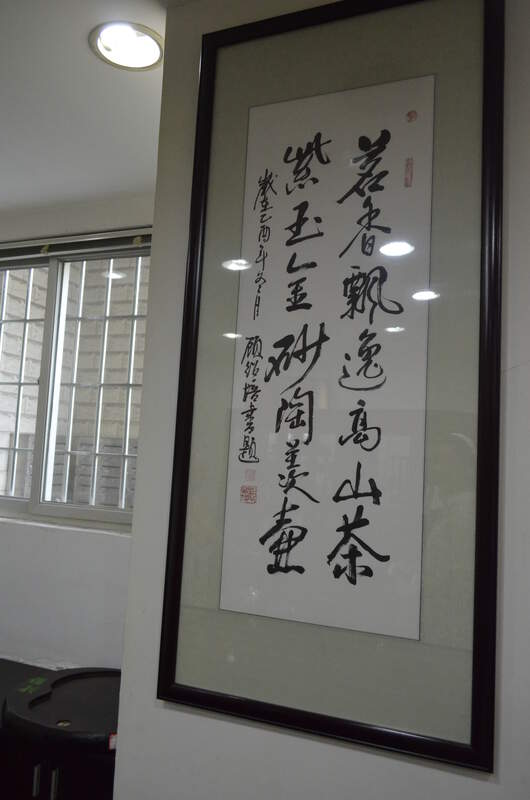 茗香飄逸高山茶
紫玉金砂陶美壺
歲在乙酉年六月
顧紹培書題